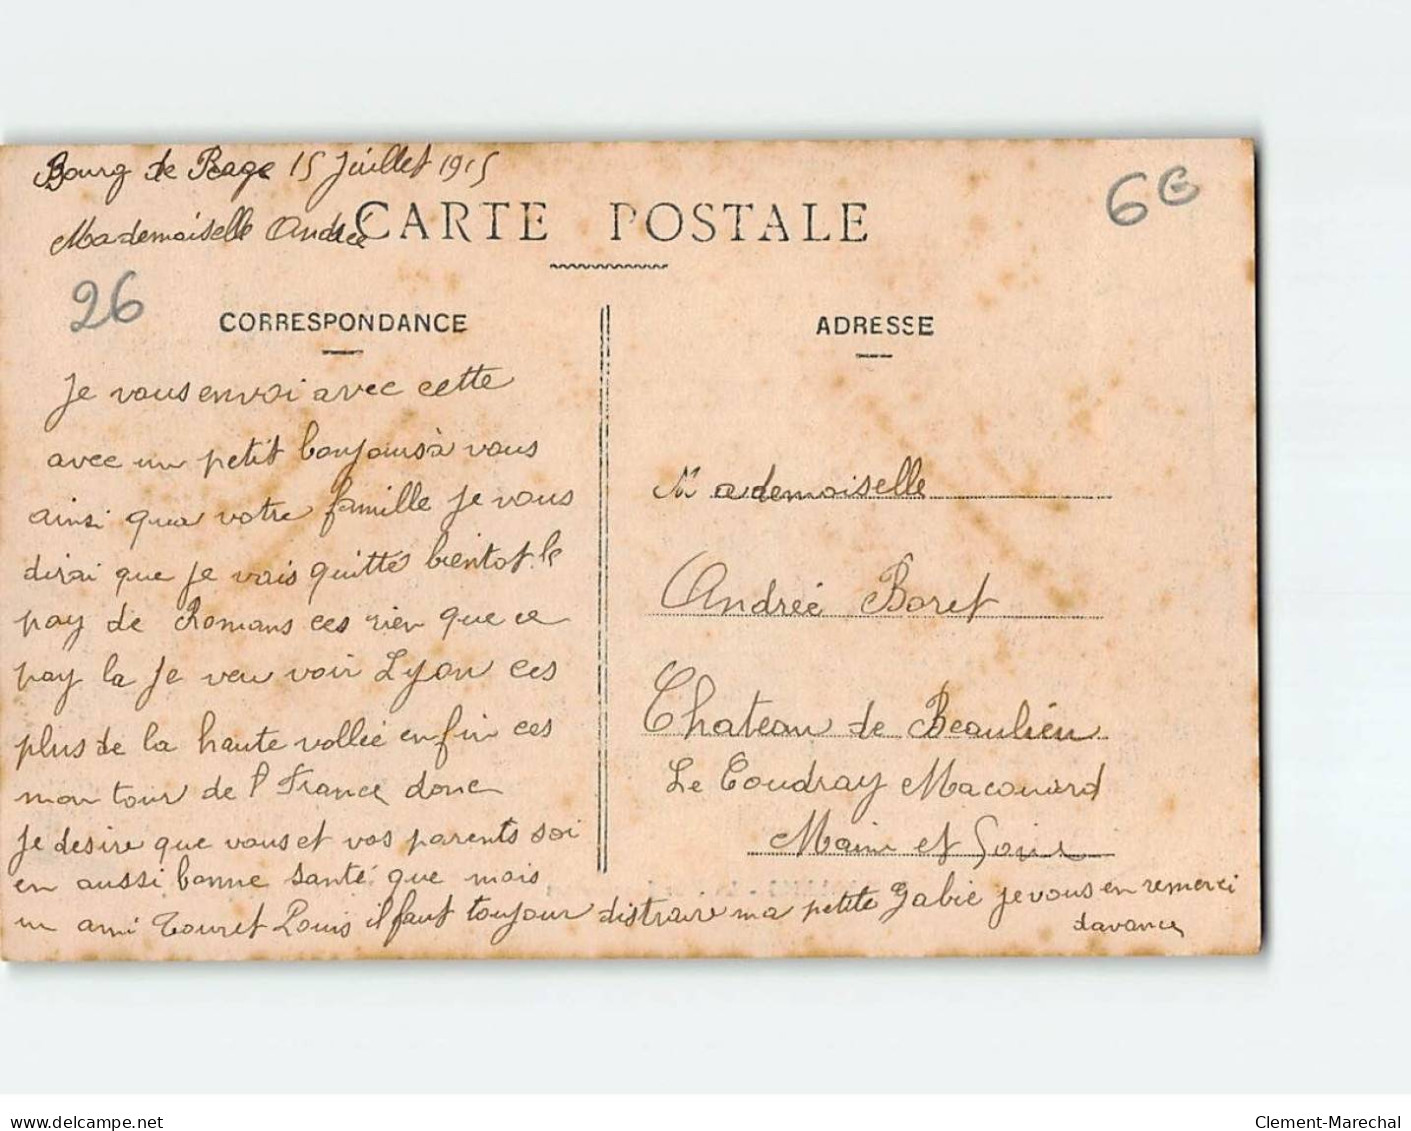 Bourg de Péage 15 Juillet 1915
Mademoiselle Andrée
CARTE POSTALE
6€
26
CORRESPONDANCE
Je vous envoi avec cette
avec un petit bonjours à vous
ainsi qua votre famille Je vous
dirai que Je vais quitté bientot le
pay de Romans ces rien que ce
pay la Je veu voir Lyon ces
plus de la haute vollée enfin ces
mon tour de l France donc
Je desire que vous et vos parents soi
en aussi bonne santé que mois
un ami Touret Louis il faut toujour distraire ma petite Gabie Je vous en remerci
davance
ADRESSE
Mademoiselle
Andrée Boret
Chateau de Beaulieu
Le Coudray Macouard
Maine et Loire
www.delcampe.net
Clement-Marechal